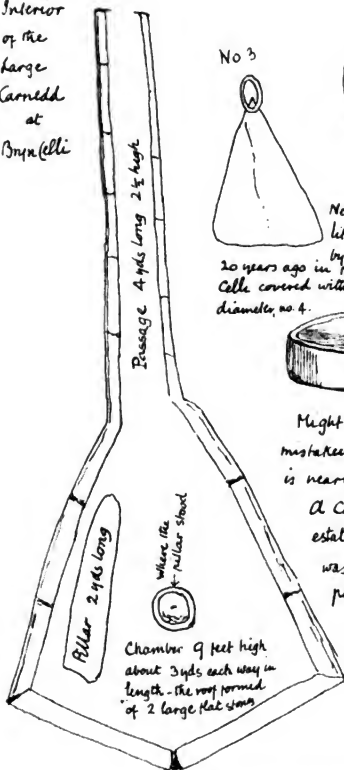 Interior
of the
Large
Carnedd
at
Bryn Celli
Passage 4 yds long 2½ high
Pillar 2 yds long
Where the
pillar stood
Chamber 9 feet high
about 3 yds each way in
length - the roof formed
of 2 large flat stones
No 3
20 years ago in
Celli covered with
diameter, no. 4.
Might
mistaken
is near
a C
estat
was